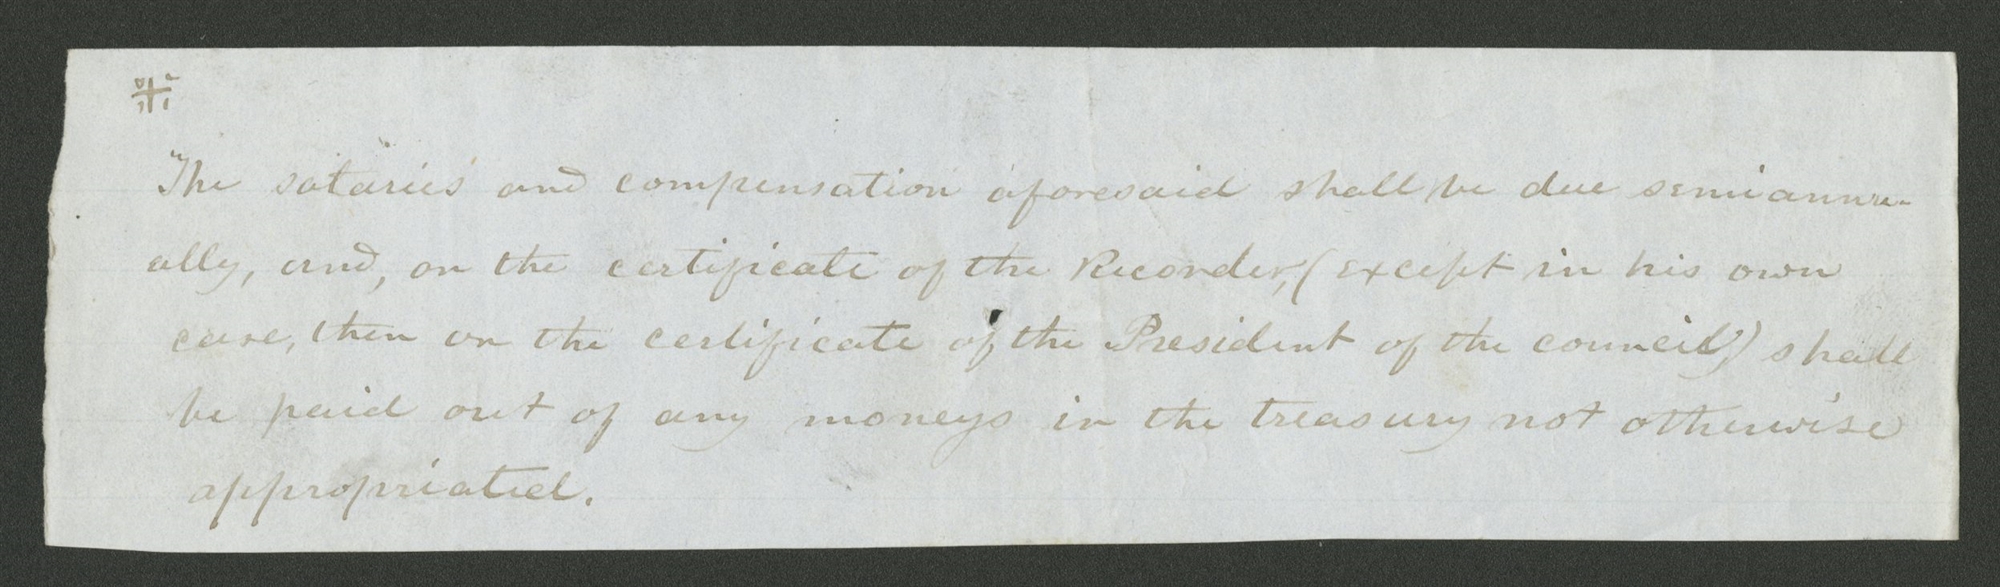 The sataries and compensation aforesaid shall be due semiannu-
ally, and, on the certificate of the Recorder, (except in his own
case, then on the certificate of the President of the council) shall
be paid out of any moneys in the treasury not otherwise
appropriated.